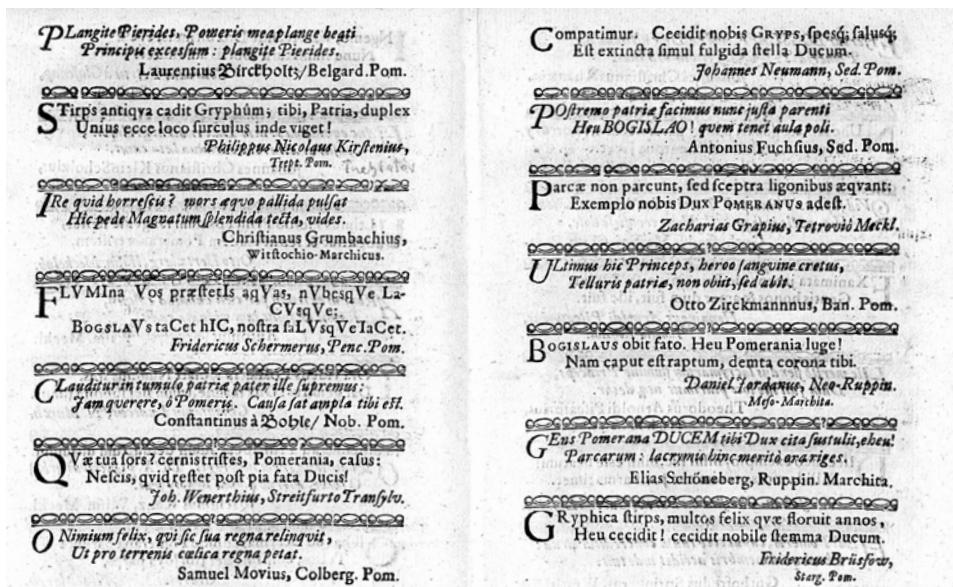 PLangite Pierides, Pomeris mea plange beati
Principis excessum: plangite Pierides.
Laurentius Birckholtz/ Belgard. Pom.
STirps antiqva cadit Gryphûm; tibi, Patria, duplex
Unius ecce loco surculus inde viget!
Philippus Nicolaus Kirstenius,
Trept. Pom.
IRe quid horrescis? mors æqvo pallida pulsat
Hic pede Magnatum splendida tecta, vides.
Christianus Grumbachius,
Witstochio-Marchicus.
FLVMIna Vos præstetIs aqVas, nVbesqVe La-
CVsqVe;
BOGSLAVs taCet hIC, nostra saLVsqVe IaCet.
Fridericus Schermerus, Penc. Pom.
CLauditur in tumulo patriæ pater ille supremus:
Jam qverere, ô Pomeris. Causa sat ampla tibi est.
Constantinus à Bohle/ Nob. Pom.
QVæ tua sors? cernis tristes, Pomerania, casus:
Nescis, qvid restet post pia fata Ducis!
Joh. Wenerthius, Streitfurto Transylv.
O Nimium felix, qvi sic sua regna relinqvit,
Ut pro terrenis cœlica regna petat.
Samuel Movius, Colberg. Pom.
Compatimur. Cecidit nobis GRYPS, spesq; salusq;
Est extincta simul fulgida stella Ducum.
Johannes Neumann, Sed. Pom.
POstremo patriæ facimus nunc justa parenti
Heu BOGISLAO! qvem tenet aula poli.
Antonius Fuchsius, Sed. Pom.
Parcæ non parcunt, sed sceptra ligonibus æqvant:
Exemplo nobis Dux POMERANUS adest.
Zacharias Grapius, Tetroviô Meckl.
ULtimus hic Princeps, heroo sangvine cretus,
Telluris patriæ, non obiit, sed abit.
Otto Zirckmannnus, Ban. Pom.
BOGISLAUS obit fato. Heu Pomerania luge!
Nam caput est raptum, demta corona tibi.
Daniel Jordanus, Neo-Ruppin.
Meso-Marchita.
GEns Pomerana DUCEM tibi Dux cita sustulit, eheu!
Parcarum: lacrymis hinc meritò ora riges.
Elias Schöneberg, Ruppin. Marchita.
GRyphica stirps, multos felix qvæ floruit annos,
Heu cecidit! cecidit nobile stemma Ducum.
Fridericus Brüsfow,
Starg. Pom.